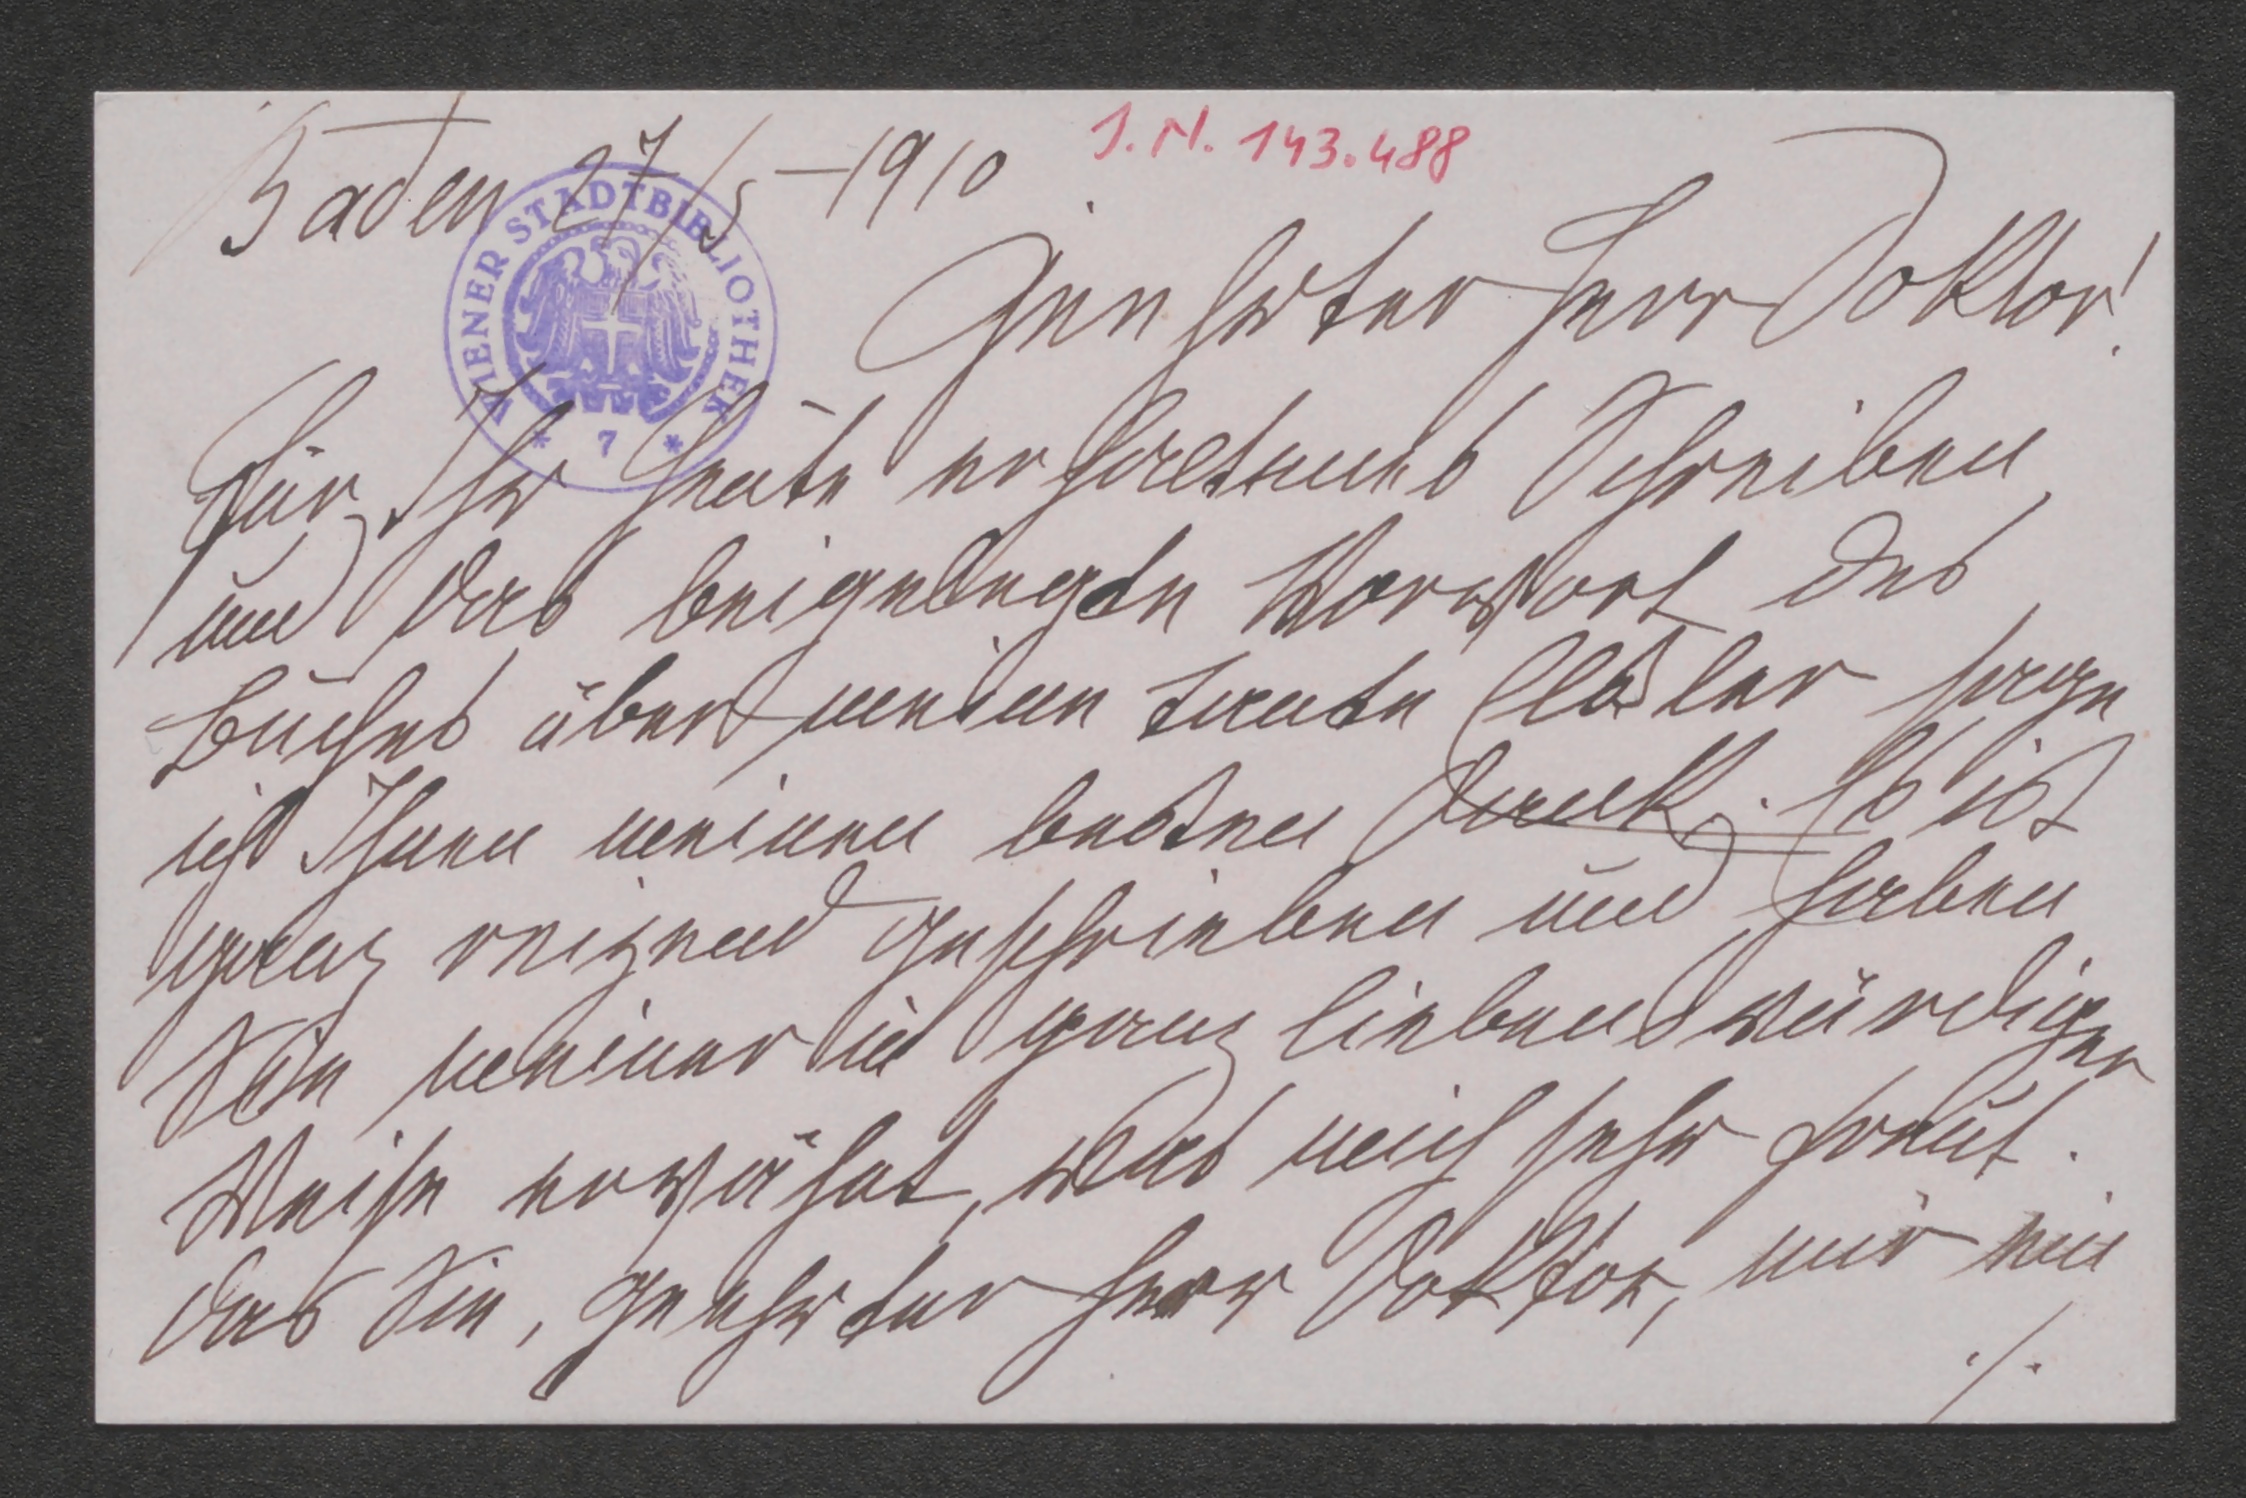 Baden 27/5–1910
J.N. 143.488
WIENER STADTBIBLIOTHEK
* 7 *
Geehrter Herr Doktor!
Für Ihr heute erhaltenes Schreiben
und das beigelegte Vorwort des
Buches über meine Tante Elsler sage
ich Ihnen meinen besten Dank. Es ist
ganz reizend geschrieben und haben
Sie meiner in ganz liebenswürdiger
Weise erwähnt, was mich sehr freut.
Das Sie, geehrter Herr Doktor, mir ein
./.